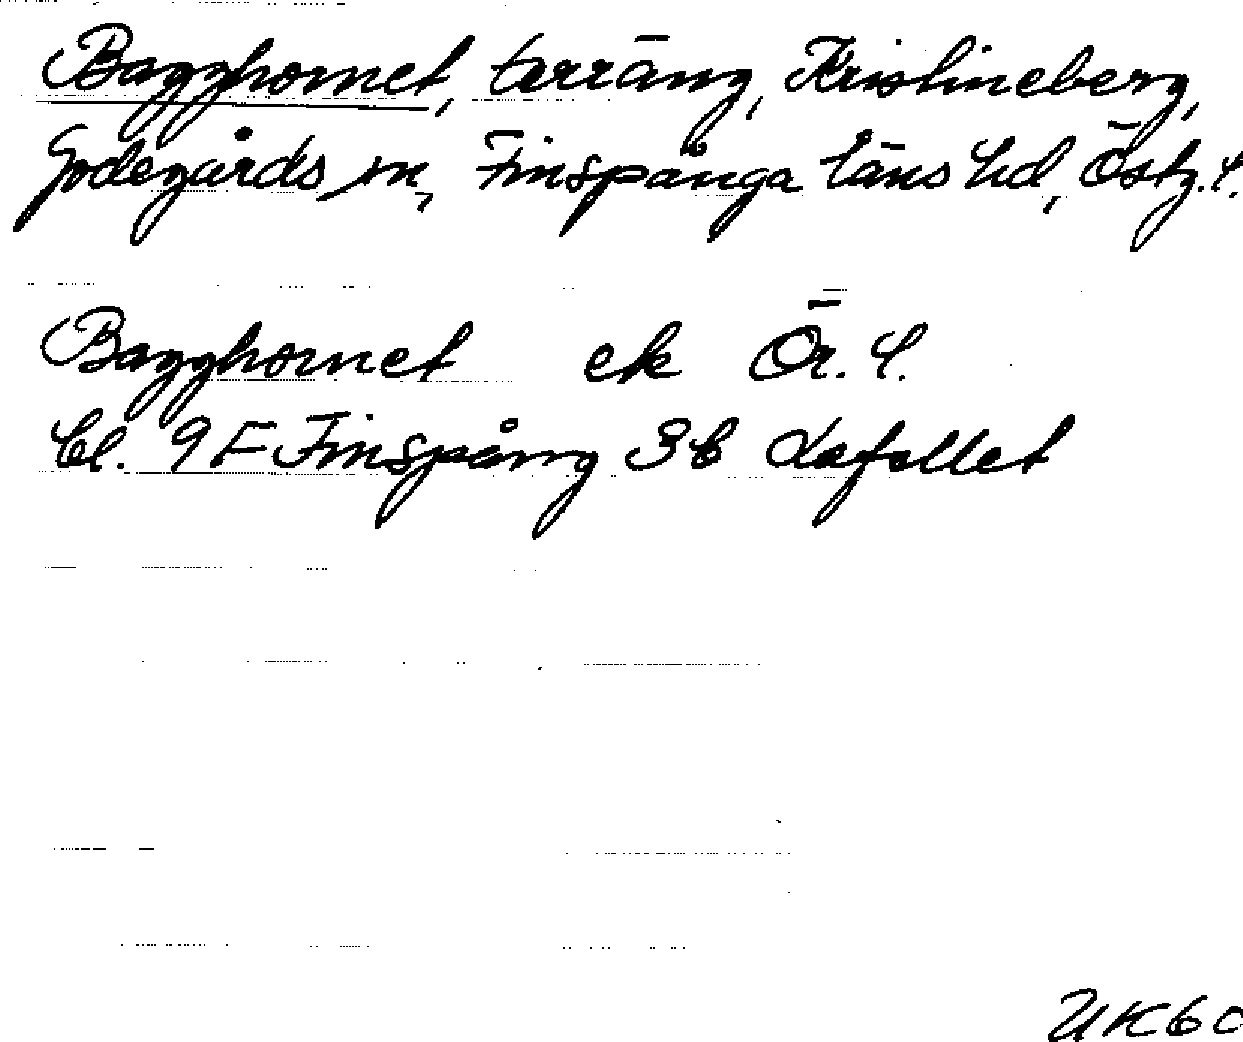 Bagghornet, terräng, Kristineberg,
Godegårds sn, Finspånga läns hd, Östg.l.
Bagghornet ek Ör. l.
bl. 9F Finspång 3b
UK60